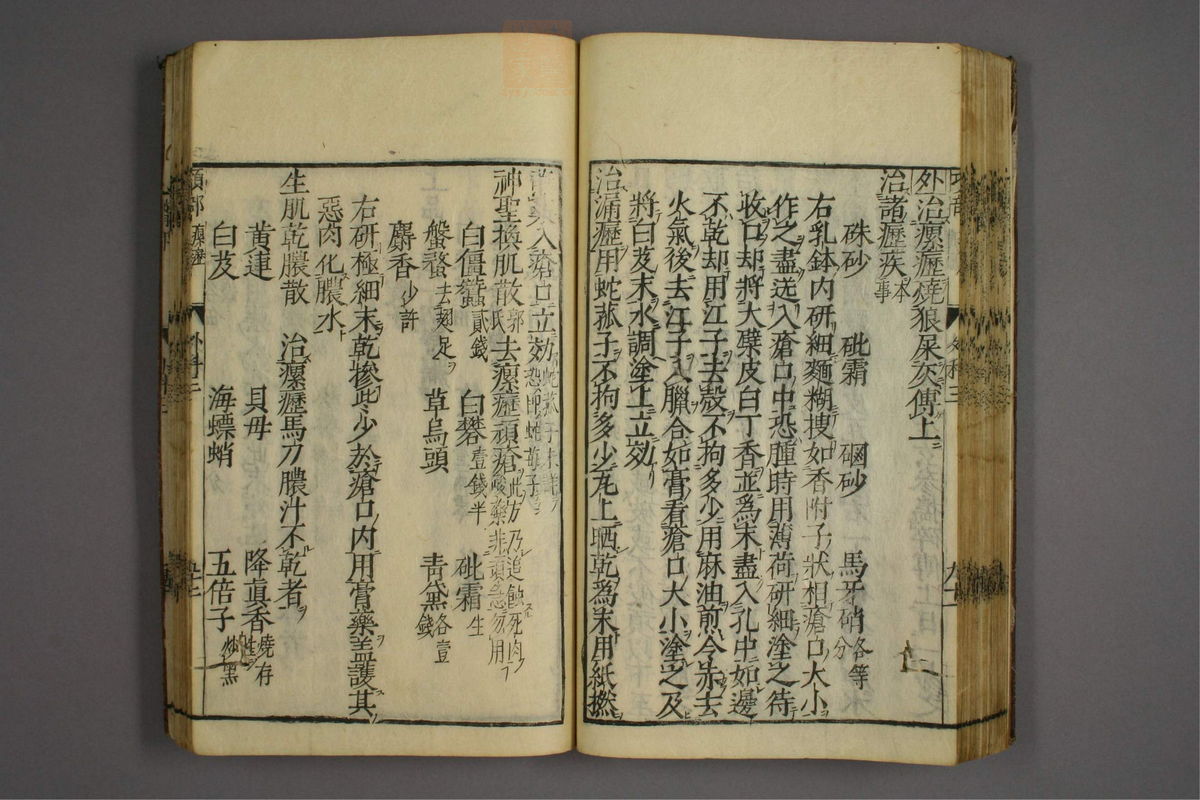 外治瘰癧燒狼屎灰傅上
治諸癧疾本事
硃砂 砒霜 硇砂 馬牙硝各等分
右乳鉢内研細麵糊搜如香附子狀相瘡口大小
作之盡送入瘡口中恐腫時用薄荷研細塗之待
收口却將大蘗皮白丁香並爲末盡入孔中如邊
不乾却用江子去殼不拘多少用麻油煎令赤去
火氣後去江子入臘合如膏看瘡口大小塗之及
將白芨末水調塗上立効
治漏癧用蛇菰子不拘多少瓦上晒乾爲末用紙撚
入瘡口立効
神聖換肌散郭氏去瘰癧頑瘡此方乃追蝕死肉
藥非頑惡勿用
白僵蠶貳錢 白礬壹錢半 砒霜生
盤蝥去翅足 草烏頭 青黛各壹錢
麝香少許
右研極細末乾摻些少於瘡口内用膏藥盖護其
惡肉化膿水
生肌乾膿散 治瘰癧馬刀膿汁不乾者
黃連 貝母 降眞香燒存性
白芨 海螵蛸 五倍子炒黑
頸部 瘰癧 外科二